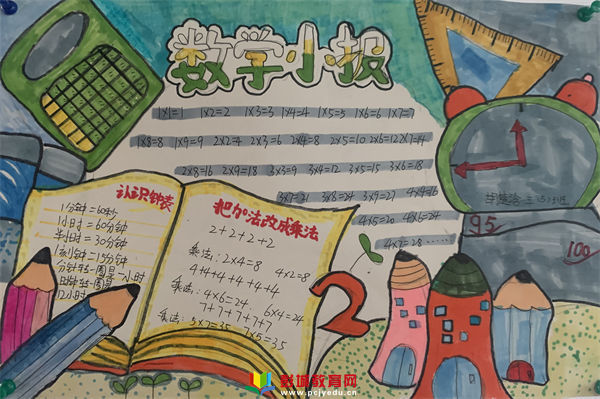 数学小报
1×1=1 1×2=2 1×3=3 1×4=4 1×5=5 1×6=6 1×7=7
1×8=8 1×9=9 2×2=4 2×3=6 2×4=8 2×5=10 2×6=12 2×7=14
2×8=16 2×9=18 3×3=9 3×4=12 3×5=15 3×6=18
3×7=21 3×8=24 3×9=27 4×4=16
4×5=20 4×6=24
4×7=28……
认识钟表
1分钟=60秒
1小时=60分钟
半小时=30分钟
1刻钟=15分钟
分针转一圈是一小时
时针转一圈是
12小时
把加法改成乘法
2+2+2+2
乘法:2×4=8 4×2=8
4+4+4+4+4+4
乘法:4×6=24 6×4=24
7+7+7+7+7
乘法:5×7=35 7×5=35
2
95
100
彭城教育网
www.pcjyedu.cn